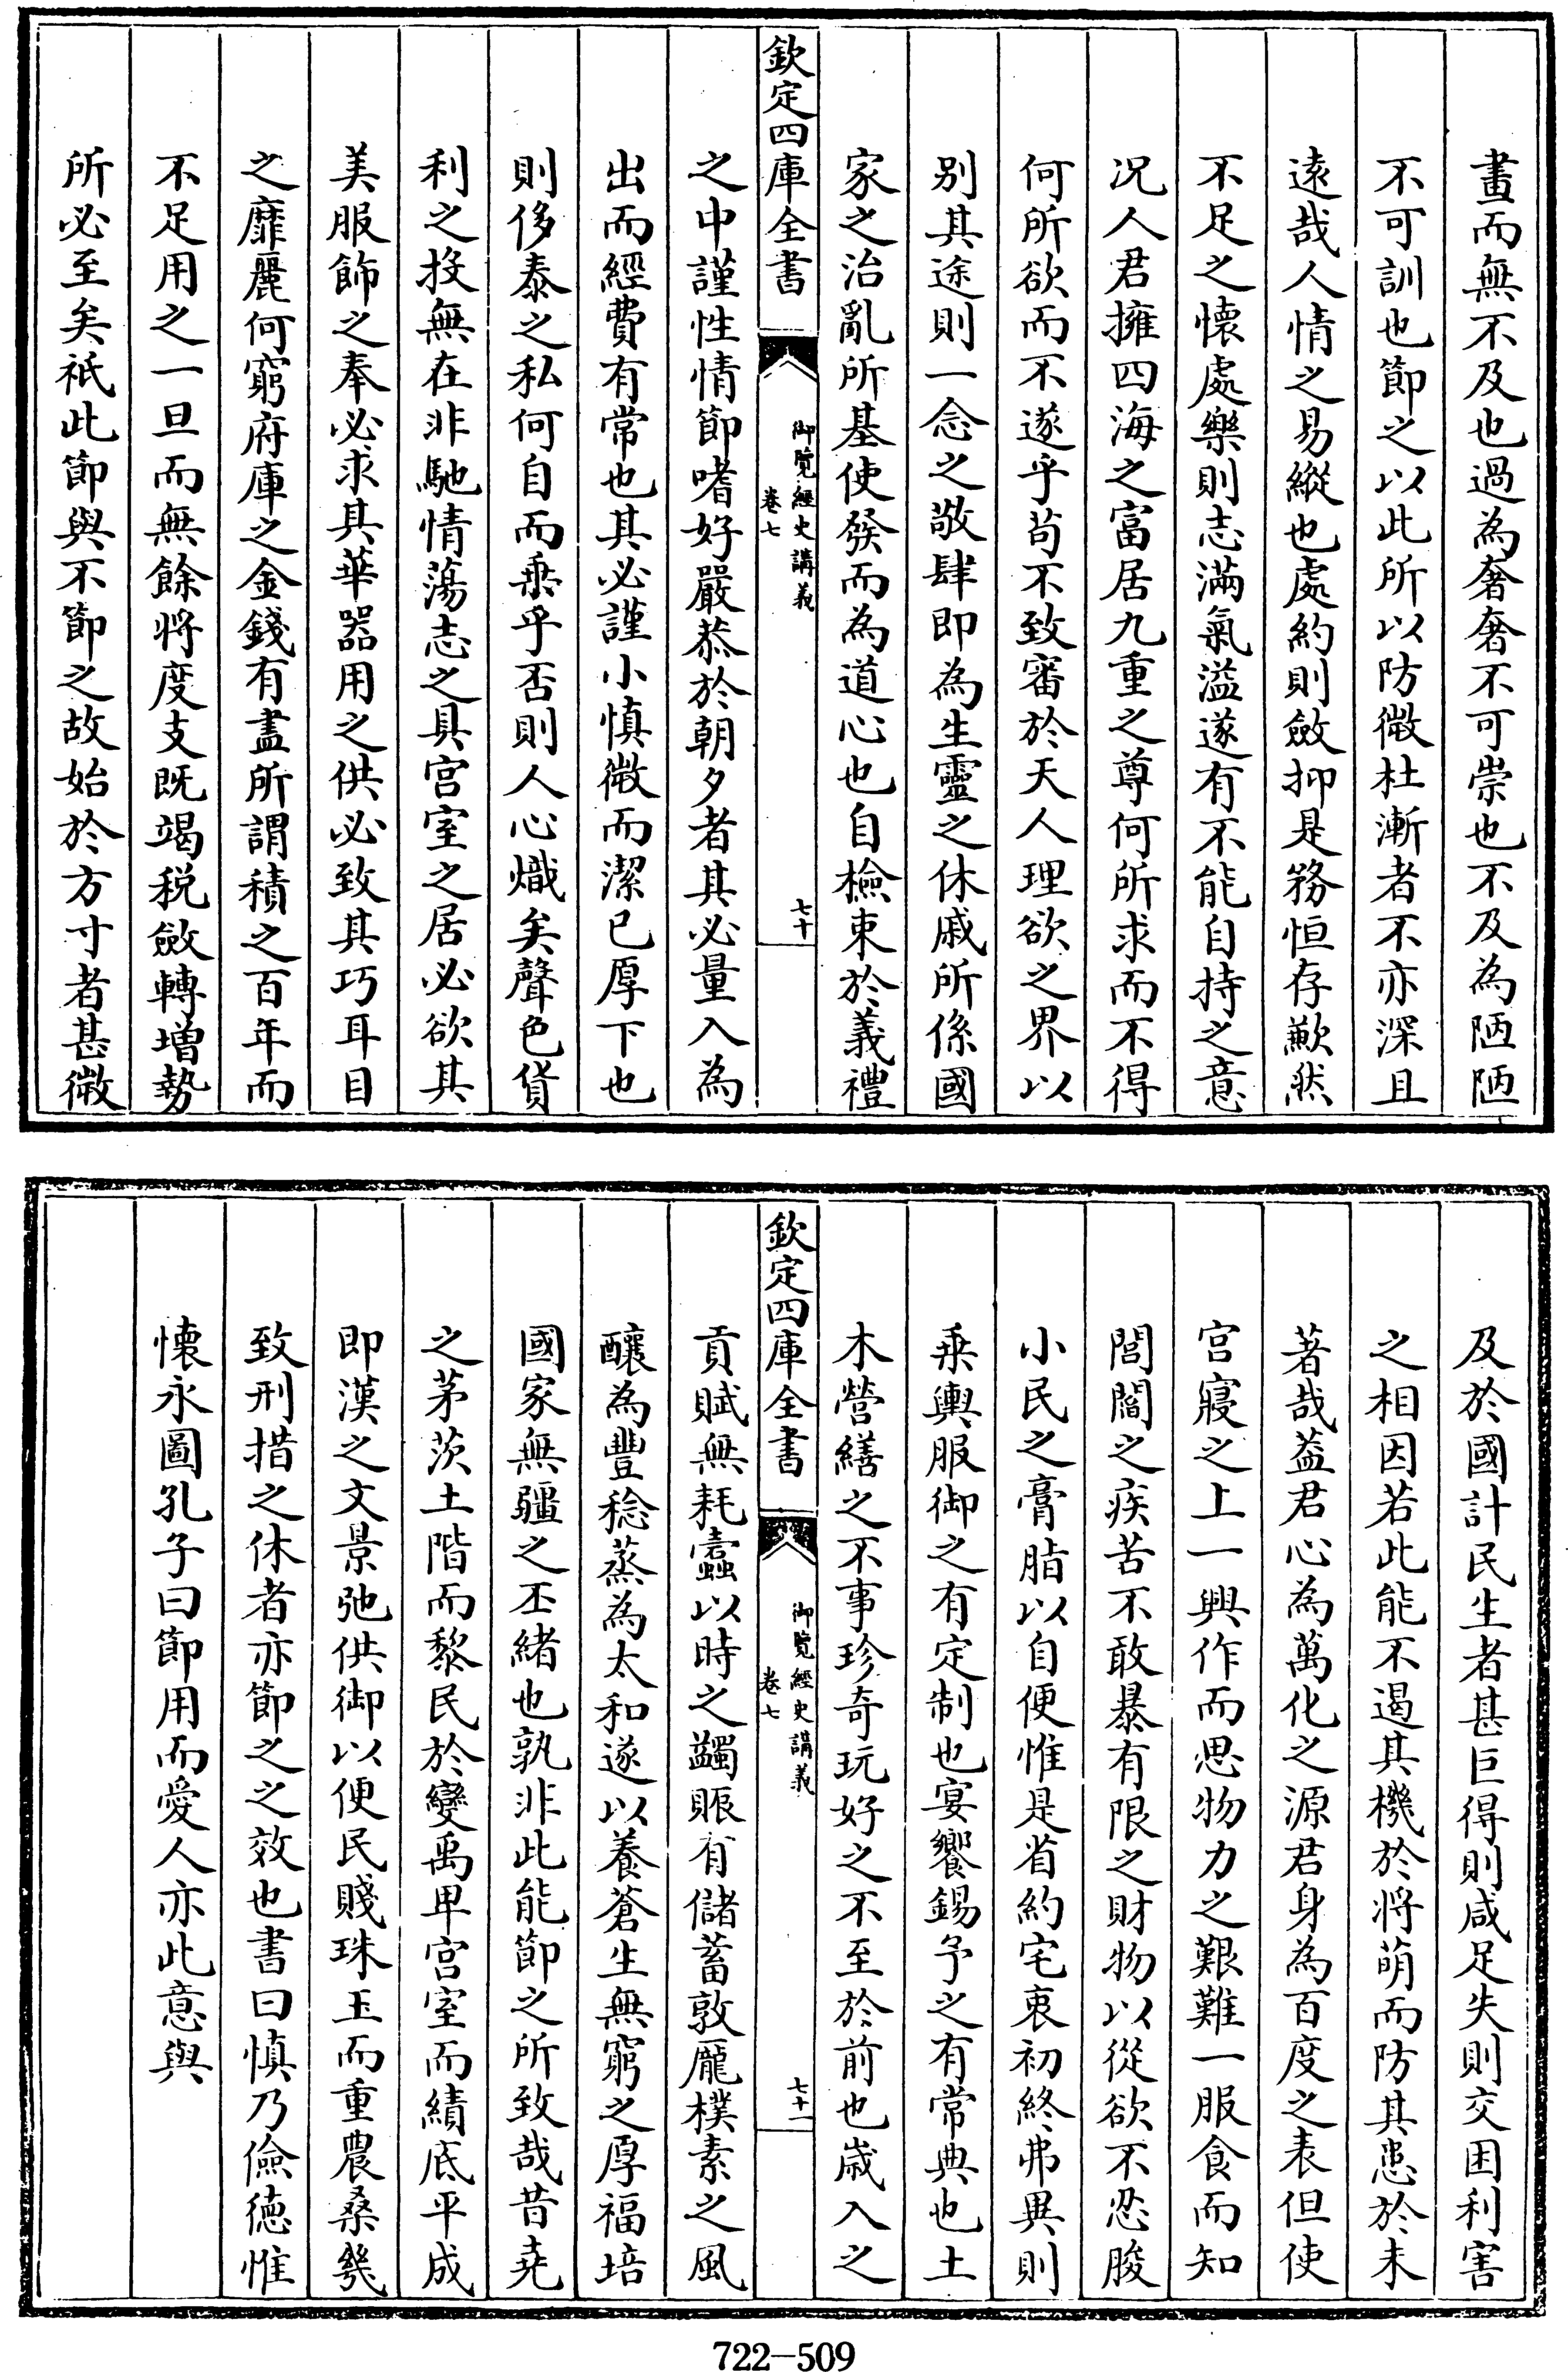 畫而無不及也過為奢奢不可崇也不及為陋陋
不可訓也節之以此所以防微杜漸者不亦深且
遠哉人情之易縱也處約則斂抑是務恒存歉然
不足之懷處樂則志滿氣溢遂有不能自持之意
况人君擁四海之富居九重之尊何所求而不得
何所欲而不遂乎苟不致審於天人理欲之界以
别其途則一念之敬肆即為生靈之休戚所係國
家之治亂所基使發而為道心也自檢束於義禮
欽定四庫全書
御覽經史講義
卷七
七十
之中謹性情節嗜好嚴恭於朝夕者其必量入為
出而經費有常也其必謹小慎微而潔已厚下也
則侈泰之私何自而乗乎否則人心熾矣聲色貨
利之投無在非馳情蕩志之具宫室之居必欲其
美服飾之奉必求其華器用之供必致其巧耳目
之靡麗何窮府庫之金錢有盡所謂積之百年而
不足用之一旦而無餘將度支既竭税斂轉增勢
所必至矣祇此節與不節之故始於方寸者甚微
及於國計民生者甚巨得則咸足失則交困利害
之相因若此能不遏其機於將萌而防其患於未
著哉葢君心為萬化之源君身為百度之表但使
宫寢之上一興作而思物力之艱難一服食而知
閭閻之疾苦不敢暴有限之財物以從欲不忍朘
小民之膏脂以自便惟是省約宅衷初終弗異則
乗輿服御之有定制也宴饗錫予之有常典也土
木營繕之不事珍奇玩好之不至於前也歲入之
欽定四庫全書
御覽經史講義
卷七
七十一
貢賦無耗蠧以時之蠲賑有儲蓄敦龎樸素之風
釀為豐稔蒸為太和遂以養蒼生無窮之厚福培
國家無疆之丕緒也孰非此能節之所致哉昔堯
之茅茨土階而黎民於變禹卑宫室而績底平成
即漢之文景弛供御以便民賤珠玉而重農桑幾
致刑措之休者亦節之之效也書曰慎乃儉德惟
懷永圖孔子曰節用而愛人亦此意與
722-509